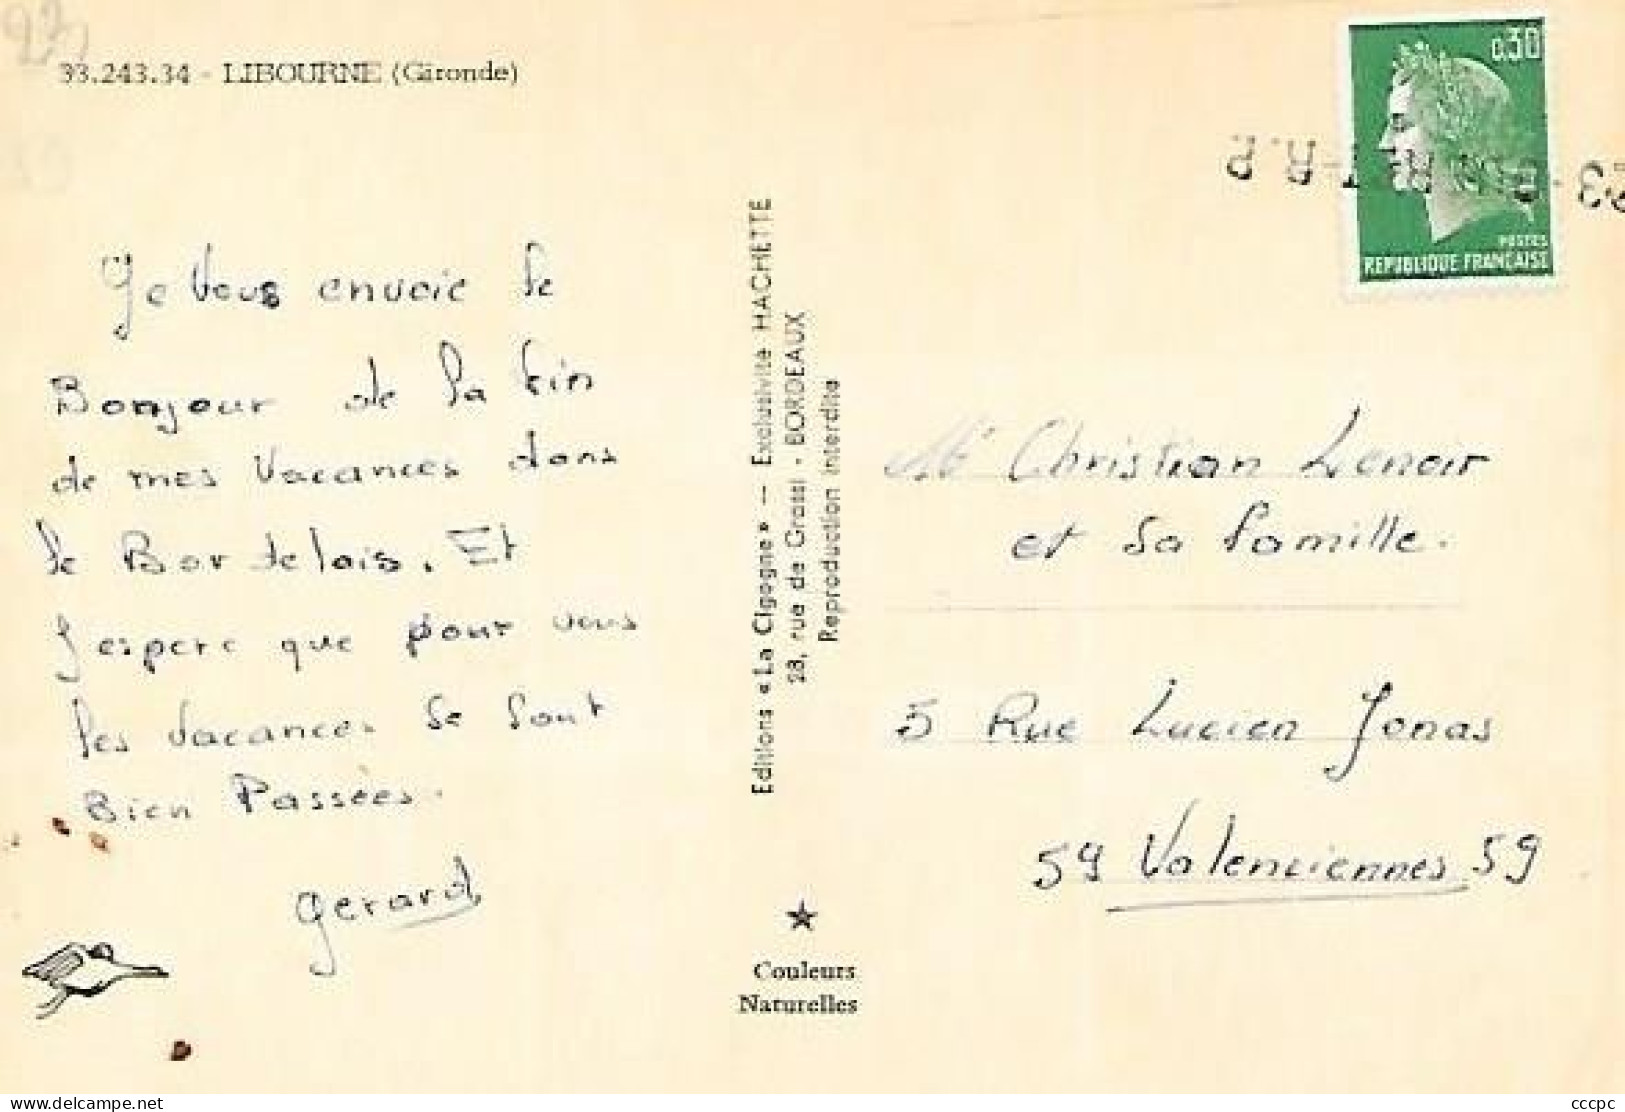 33.243.34 - LIBOURNE (Gironde)
Je Vous envoie le
Bonjour de la fin
de mes Vacances dans
le Bordelais. Et
J'espere que pour vous
les Vacances se sont
Bien Passées.
Gerard
Editions « La Cigogne » — Exclusivité HACHETTE
28, rue de Grassi - BORDEAUX
Reproduction interdite
★
Couleurs
Naturelles
0,30
POSTES
REPUBLIQUE FRANCAISE
Mr Christian Lenoir
et sa famille.
5 Rue Lucien Jonas
59 Valenciennes 59
cccpc